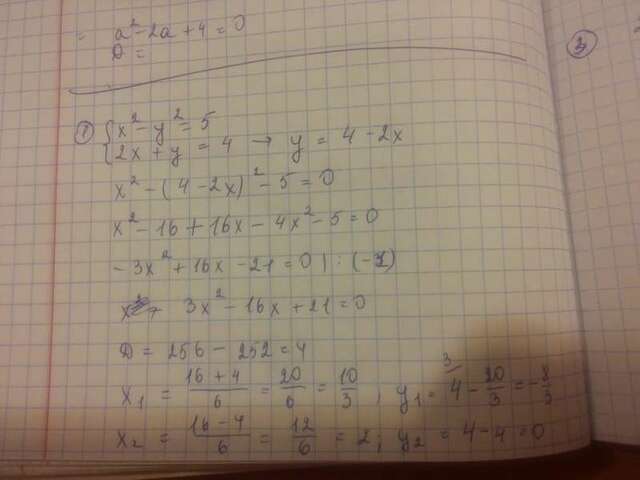 a² - 2a + 4 = 0
D =
3
1 { x² - y² = 5
2x + y = 4 → y = 4 - 2x
x² - (4 - 2x)² - 5 = 0
x² - 16 + 16x - 4x² - 5 = 0
-3x² + 16x - 21 = 0 | : (-1)
3x² - 16x + 21 = 0
D = 256 - 252 = 4
x₁ = (16 + 4)/6 = 20/6 = 10/3 , y₁ = 4 ³⁄ - 20/3 = - 8/3
x₂ = (16 - 4)/6 = 12/6 = 2 ; y₂ = 4 - 4 = 0